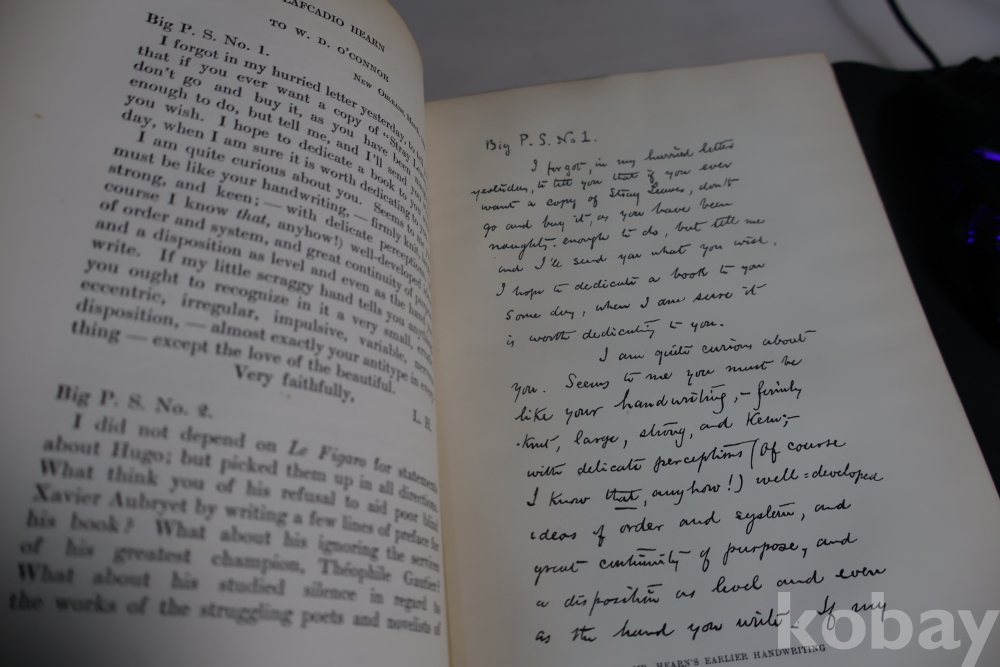 LAFCADIO HEARN
TO W. D. O'CONNOR
New Orleans,
Big P. S. No. 1.
I forgot in my hurried letter yesterday, to
that if you ever want a copy of "Stray
don't go and buy it, as you have been
enough to do, but tell me, and I'll send you
you wish. I hope to dedicate a book to you
day, when I am sure it is worth dedicating to
I am quite curious about you. Seems to
must be like your handwriting, — firmly
strong, and keen; — with delicate perceptions
course I know that, anyhow!) well-developed
of order and system, and great continuity of
and a disposition as level and even as the hand
write. If my little scraggy hand tells you
you ought to recognize in it a very small,
eccentric, irregular, impulsive, variable,
disposition, — almost exactly your antitype in
thing — except the love of the beautiful.
Very faithfully,
L. H.
Big P. S. No. 2.
I did not depend on Le Figaro for statements
about Hugo; but picked them up in all directions.
What think you of his refusal to aid poor blind
Xavier Aubryet by writing a few lines of preface for
his book? What about his ignoring the services
of his greatest champion, Théophile Gautier?
What about his studied silence in regard to
the works of the struggling poets and novelists of
Big P. S. No 1.
I forgot, in my hurried letter
yesterday, to tell you that if you ever
want a copy of Stray Leaves, don't
go and buy it, as you have been
naughty enough to do, but tell me
and I'll send you what you wish.
I hope to dedicate a book to you
some day, when I am sure it
is worth dedicating to you.
I am quite curious about
you. Seems to me you must be
like your handwriting, — firmly
knit, large, strong, and keen; —
with delicate perceptions (Of course
I know that, anyhow!) well=developed
ideas of order and system, and
great continuity of purpose, and
a disposition as level and even
as the hand you write. If my
HEARN'S EARLIER HANDWRITING
kobay